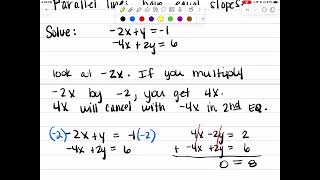 Parallel lines have equal slopes.
Solve: -2x+y = -1
-4x+2y = 6
look at -2x. If you multiply
-2x by -2, you get 4x.
4x will cancel with -4x in 2nd EQ.
(-2) -2x+y = -1 (-2) 4x -2y = 2
-4x +2y = 6 + -4x +2y = 6
0 = 8